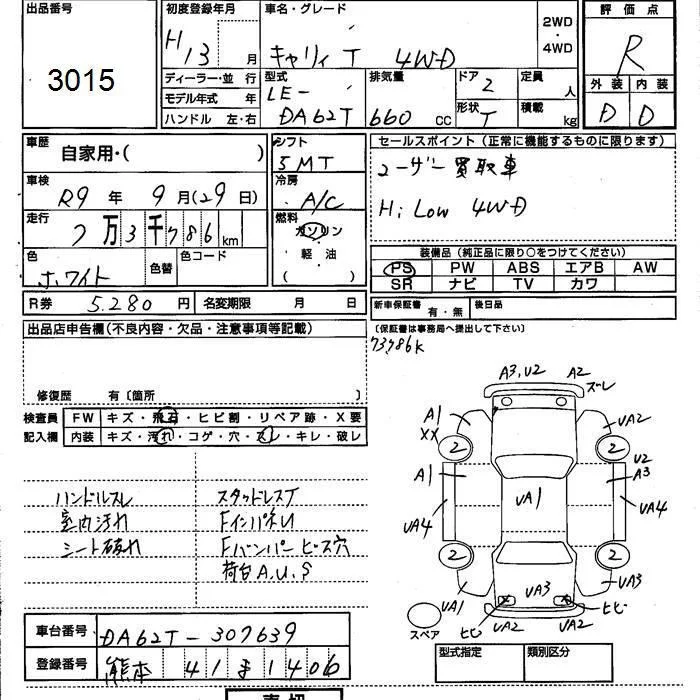 出品番号 初度登録年月 車名・グレード 評価点
3015 H13 月 キャリィ T 4WD 2WD・4WD R
ディーラー・並行 型式 排気量 ドア 2 定員 人 外装 内装
モデル年式 年 LE-
ハンドル 左・右 DA62T 660 CC 形状 T 積載 kg D D
車歴 自家用・( ) シフト 5MT セールスポイント(正常に機能するものに限ります)
車検 R9 年 9 月(29日) 冷房 A/C ユーザー買取車
走行 7万3千786km 燃料 ガソリン Hi Low 4WD
色 ホワイト 色替 色コード 軽油 ( )
装備品(純正品に限り○をつけてください)
PS PW ABS エアB AW
SR ナビ TV カワ
R券 5.280 円 名変期限 月 日 新車保証書 有・無 後日品
出品店申告欄(不良内容・欠品・注意事項等記載) (保証書は事務局へ提出して下さい)
73786K
修復歴 有〔箇所 〕
検査員 FW キズ・飛石・ヒビ割・リペア跡・X要
記入欄 内装 キズ・汚れ・コゲ・穴・スレ・キレ・破レ
A3,U2 A2 ズレ
A1 XX UA2
2 2
U2
A1 A3
UA1
UA4 UA4
2 2
UA3
UA1 UA3
ヒビ UA2 UA2 ヒビ
スペア
ハンドルスレ スタッドレスT
室内汚れ FインパネU
シート破れ Fバンパービス穴
荷台A.U.S
車台番号 DA62T-307639
登録番号 熊本 41 ま 1406
型式指定 類別区分